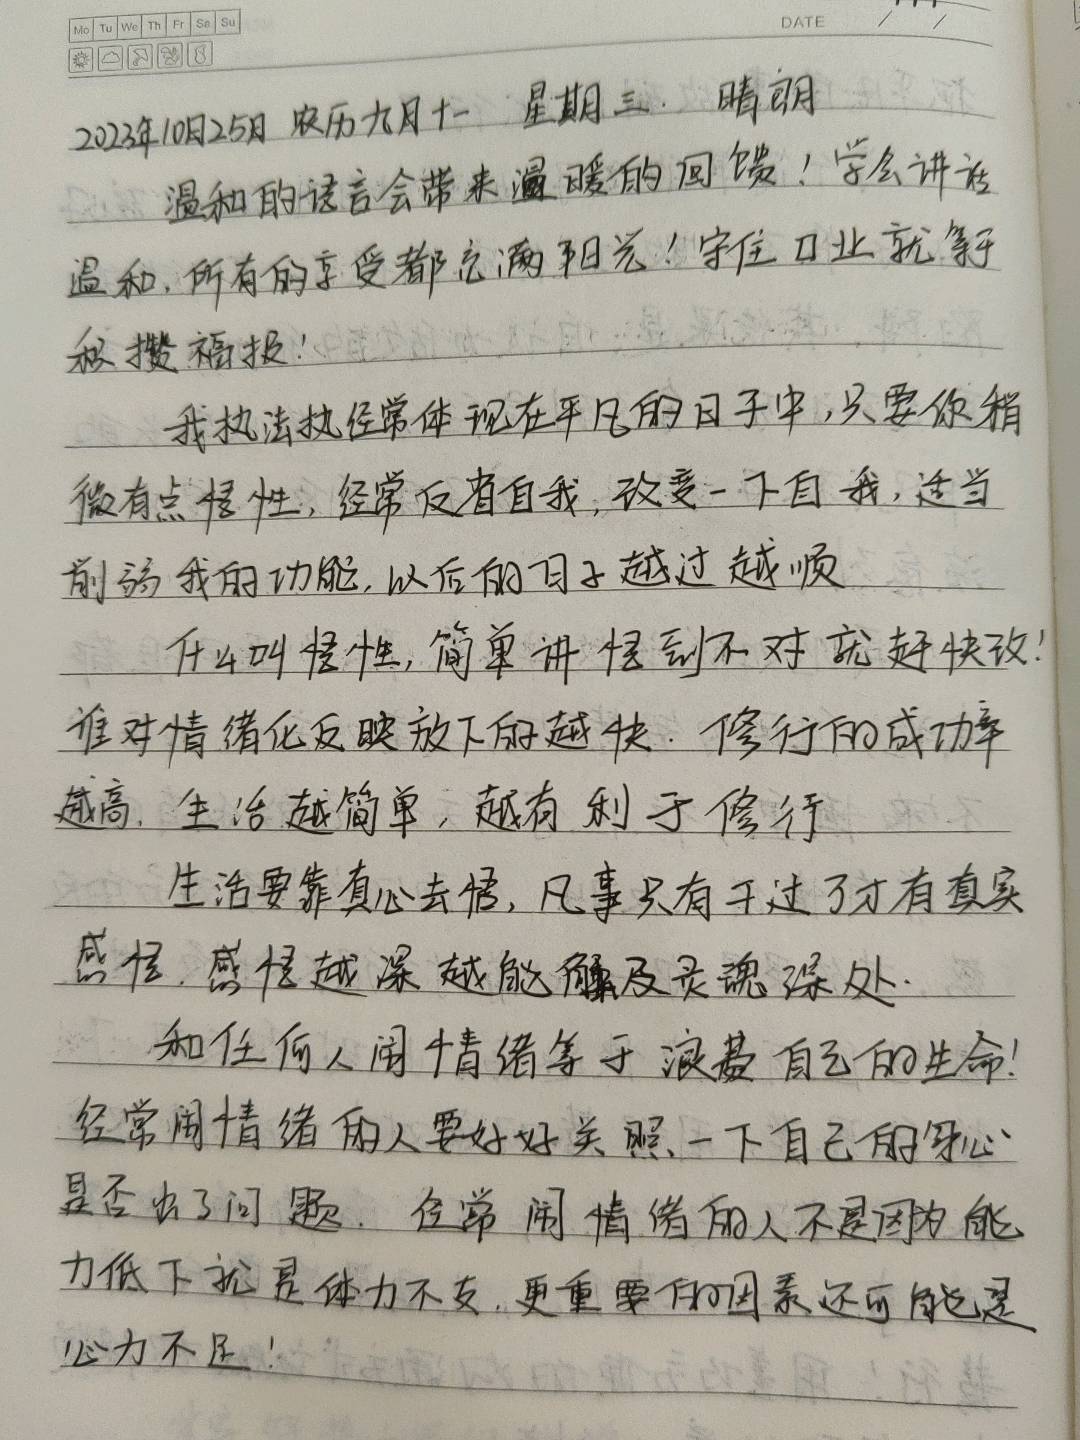 Mo Tu We Th Fr Sa Su
DATE
2023年10月25日 农历九月十一 星期三. 晴朗
温和的语言会带来温暖的回馈！学会讲话
温和.所有的享受都充满阳光！守住口业就等于
积攒福报！
我执法执经常体现在平凡的日子中,只要你稍
微有点悟性,经常反省自我,改变一下自我,适当
削弱我的功能,以后的日子越过越顺
什么叫悟性,简单讲悟到不对就赶快改！
谁对情绪化反映放下的越快.修行的成功率
越高.生活越简单,越有利于修行
生活要靠真心去悟,凡事只有干过了才有真实
感悟.感悟越深越能触及灵魂深处.
和任何人闹情绪等于浪费自己的生命！
经常闹情绪的人要好好关照一下自己的身心
是否出了问题.经常闹情绪的人不是因为能
力低下就是体力不支.更重要的因素还可能是
心力不足！